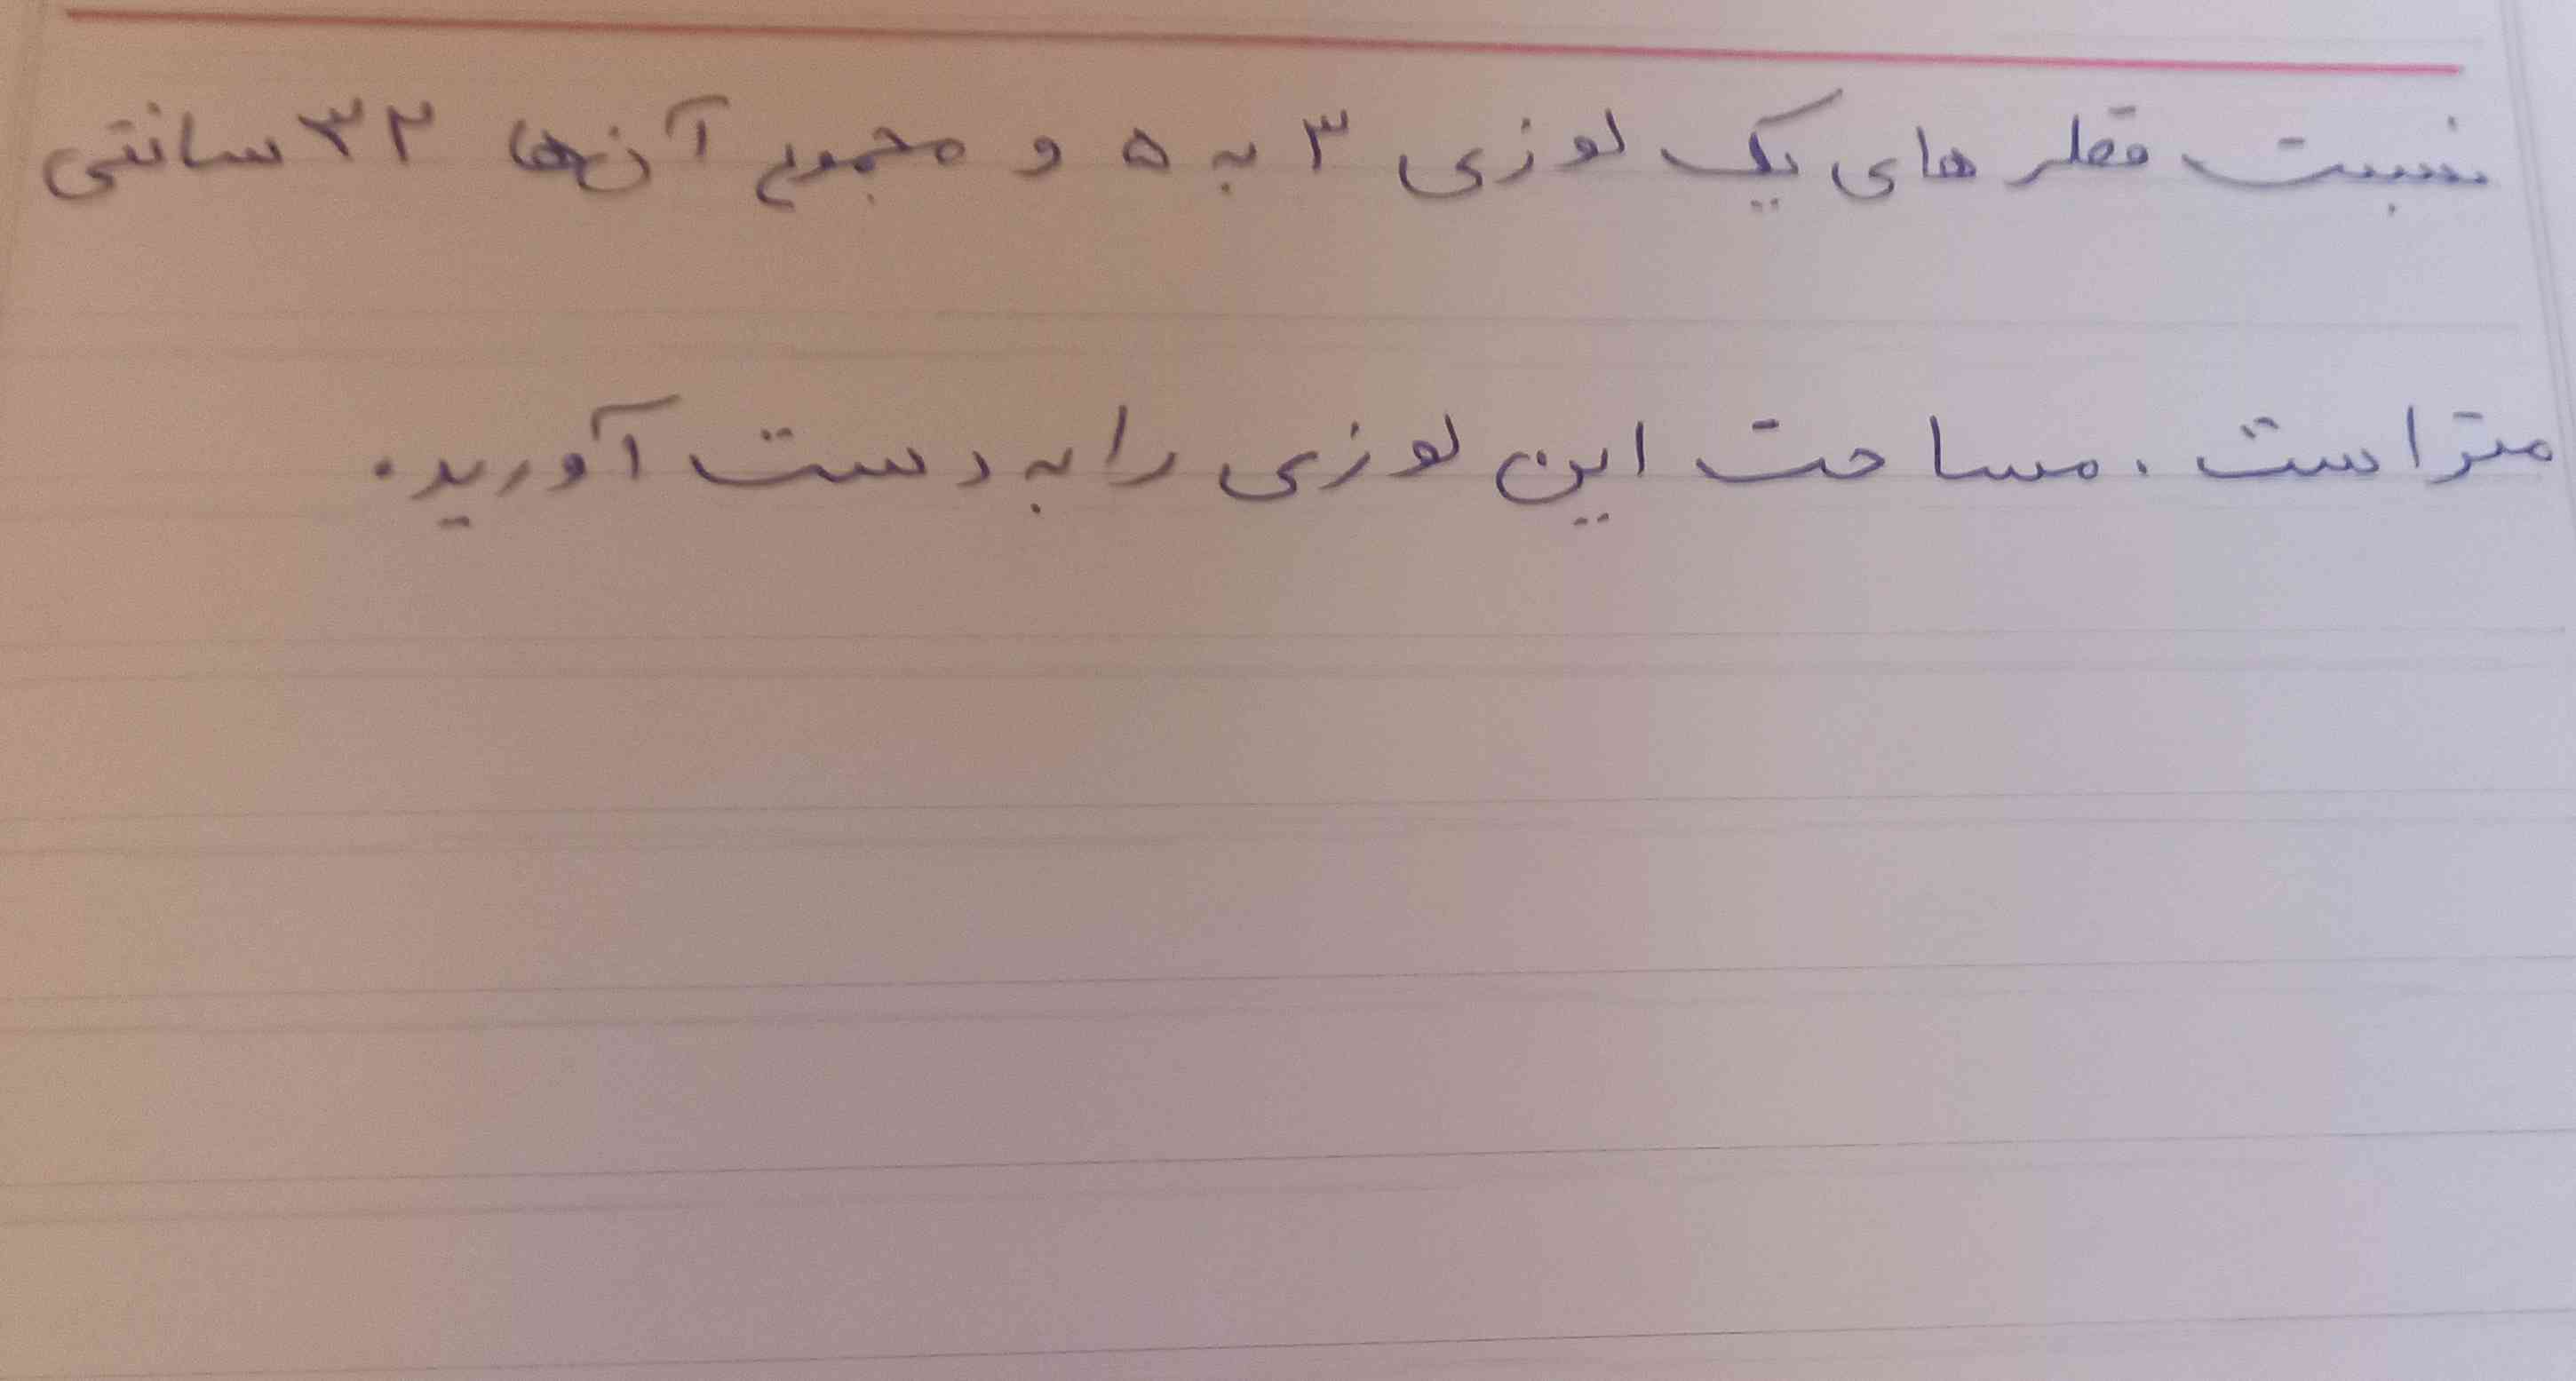 نسبت قطر های یک لوزی ۳ به ۵ و مجموع آن‌ها ۳۲ سانتی
متر است . مساحت این لوزی را به دست آورید.